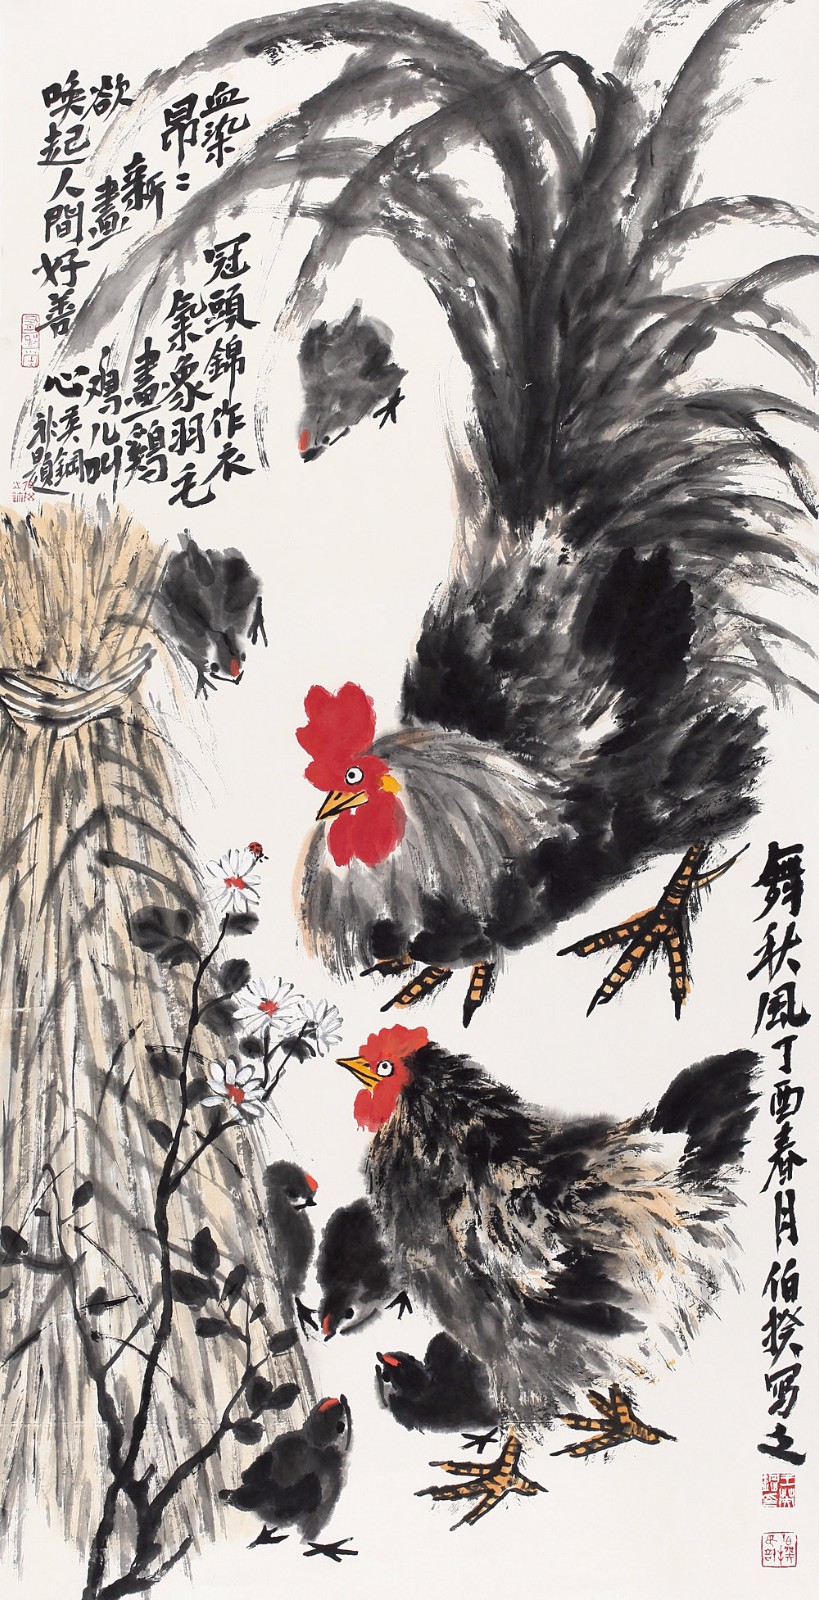 血染冠頭錦作衣
昂〻氣象羽毛
新畫鷄
欲畫鷄儿叫
喚起人間好善心 吴鋼
补題
舞秋風丁酉春月伯揆寫之